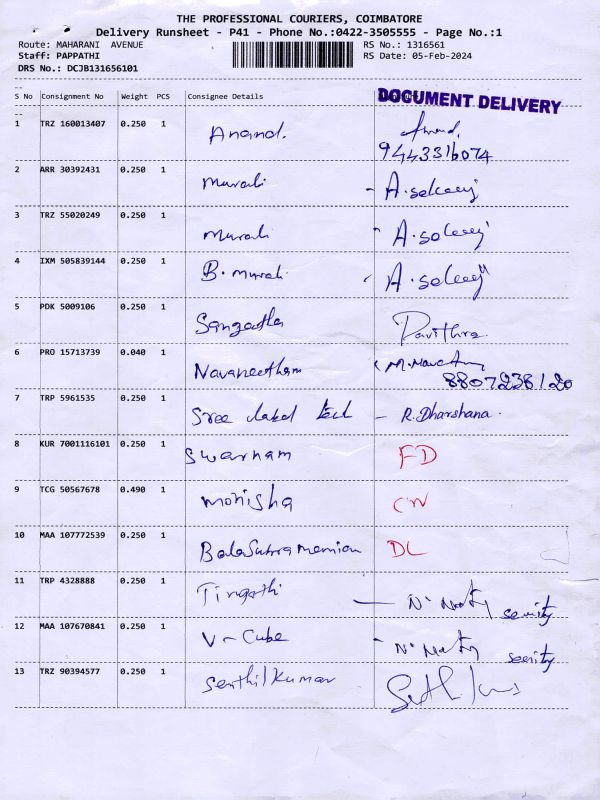 THE PROFESSIONAL COURIERS, COIMBATORE
Delivery Runsheet - P41 - Phone No.:0422-3505555 - Page No.:1
Route: MAHARANI AVENUE RS No.: 1316561
Staff: PAPPATHI RS Date: 05-Feb-2024
DRS No.: DCJB131656101
S No Consignment No Weight PCS Consignee Details DOCUMENT DELIVERY
1 TRZ 160013407 0.250 1 Anand. Anand.
9443316074
2 ARR 30392431 0.250 1 Murali - A.
3 TRZ 55020249 0.250 1 Murali - A.
4 IXM 505839144 0.250 1 B. Murali A.
5 PDK 5009106 0.250 1 Sangeetha Pavithra.
6 PRO 15713739 0.040 1 Navaneetham M.
8807238120
7 TRP 5961535 0.250 1 Sree label - R. Dharshana.
8 KUR 7001116101 0.250 1 Swarnam FD
9 TCG 50567678 0.490 1 Monisha CN
10 MAA 107772539 0.250 1 DL
11 TRP 4328888 0.250 1 — N.
12 MAA 107670841 0.250 1 V-Cube - N.
13 TRZ 90394577 0.250 1 Senthil Kumar